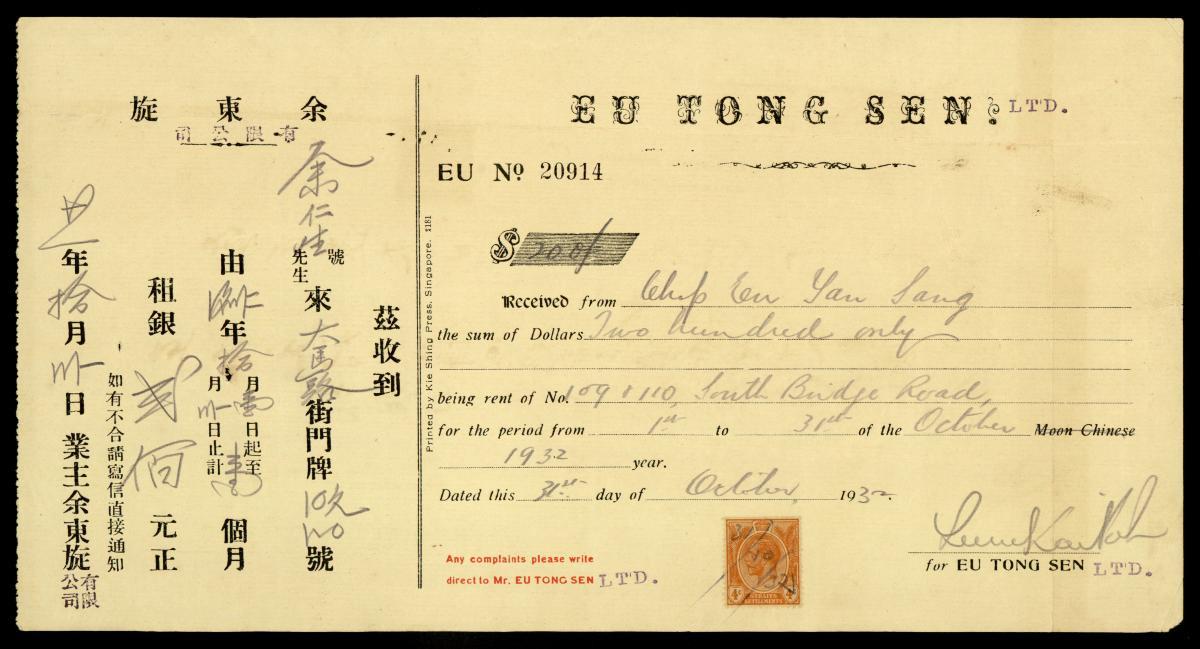 余東旋
有限公司
茲收到
余仁生 號 先生 來 大馬路 街門牌 號
由 年 拾 月 壹 日起至 月 日止計 壹 個月
租銀 弍佰 元正
如有不合請寫信直接通知
年 拾 月 日 業主余東旋 有限公司
EU TONG SEN. LTD.
EU No 20914
$ 200/
Received from Chop Eu Yan Sang
the sum of Dollars Two hundred only
being rent of No. 109 & 110, South Bridge Road,
for the period from 1st to 31st of the October Moon Chinese
1932 year.
Dated this 31st day of October, 1932.
Any complaints please write
direct to Mr. EU TONG SEN LTD.
4c STRAITS SETTLEMENTS 4c
for EU TONG SEN LTD.
Printed by Kie Shing Press, Singapore. 1181